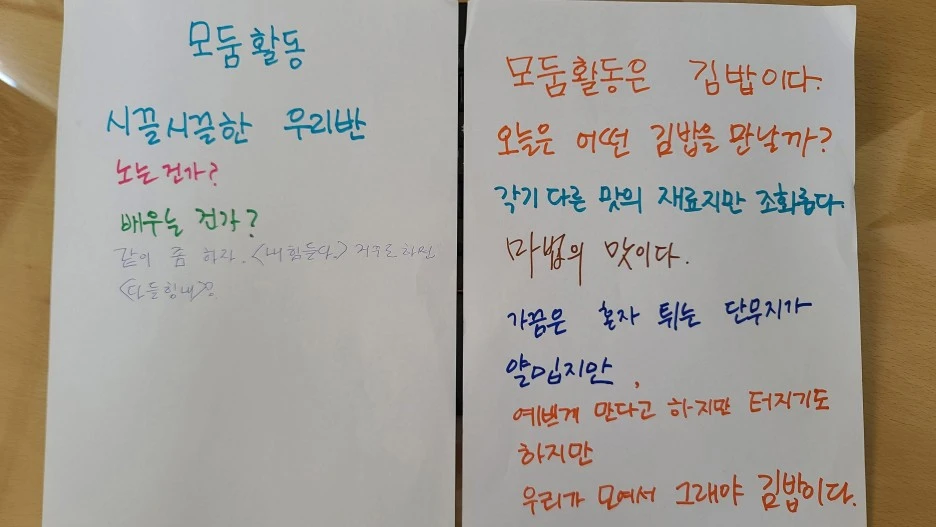 모둠활동
시끌시끌한 우리반
노는건가?
배우는 건가?
같이 좀 하자. <내 힘들다>
<다들힘내>
모둠활동은 김밥이다.
오늘은 어떤 김밥을 만날까?
각기 다른 맛의 재료지만 조화롭다.
마법의 맛이다.
가끔은 혼자 튀는 단무지가
얄밉지만,
예쁘게 만다고 하지만 터지기도
하지만
우리가 모여서 그래야 김밥이다.